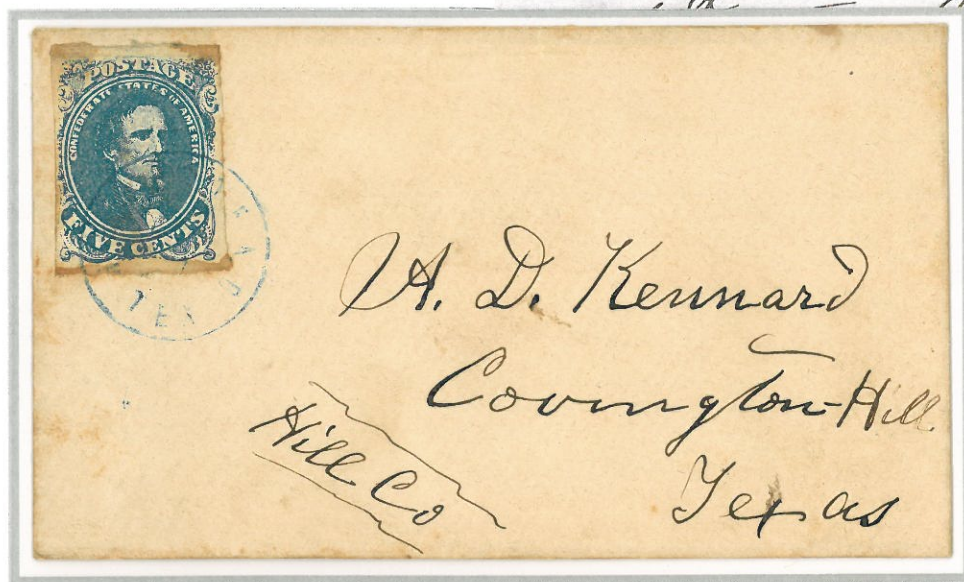 POSTAGE
CONFEDERATE STATES OF AMERICA
FIVE CENTS
TEX
A. D. Kennard
Covington Hill
Texas
Hill Co